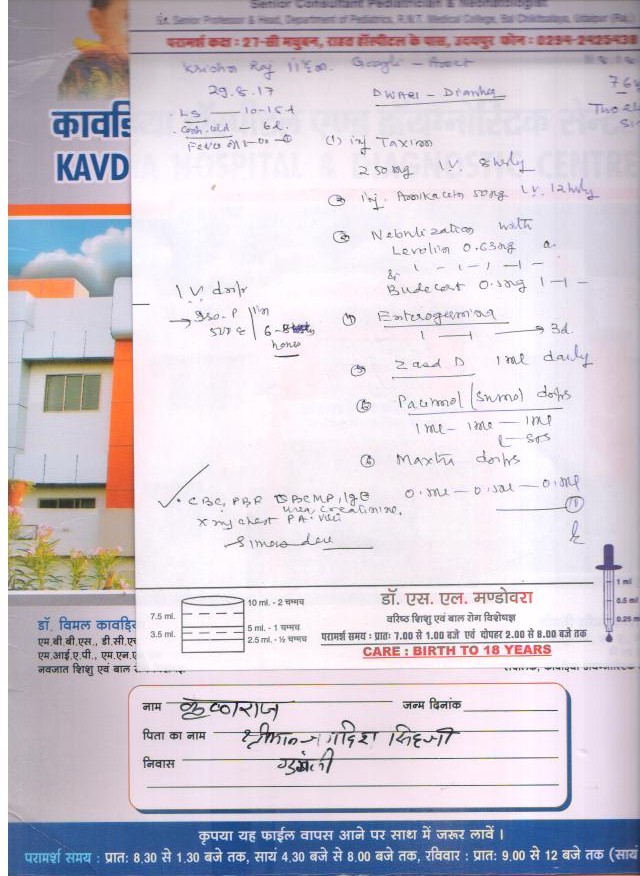 Senior Consultant Pediatrician & Neonatologist
Ex. Senior Professor & Head, Department of Pediatrics, R.N.T. Medical College, Bal Chikitsalaya, Udaipur (Raj.)
परामर्श कक्ष : 27-सी मधुबन, राहत हॉस्पीटल के पास, उदयपुर फोन : 0294-2425438
Krishna Raj
29.8.17
LS — 10-15t
कावड़ि
KAVD
A HOSPITAL & DIAGNOSTIC CENTRE
(1) inj Taxim
250mg I.V. 8 hrly
inj. Amikacin 50mg I.V. 12 hrly
Nebulization with
Levolin 0.63mg
&
Budecort 0.5mg 1-1-
I.V. drip
Iso-P
Enterogermina
1 — 1 → 3d.
Zaad D 1ml daily
Pacimol / Sumol drops
1ml - 1ml - 1ml
SOS
Maxtra drops
0.5ml - 0.5ml - 0.5ml
CBC, PBF
urea, creatinine,
X ray chest P.A. view
10 ml. - 2 चम्मच
7.5 ml.
5 ml. - 1 चम्मच
3.5 ml.
2.5 ml. - ½ चम्मच
1 ml
0.5 ml
0.25 m
डॉ. एस. एल. मण्डोवरा
वरिष्ठ शिशु एवं बाल रोग विशेषज्ञ
परामर्श समय : प्रातः 7.00 से 1.00 बजे एवं दोपहर 2.00 से 8.00 बजे तक
CARE : BIRTH TO 18 YEARS
डॉ. विमल कावड़ि
एम.बी.बी.एस., डी.सी.ए
एम.आई.ए.पी., एम.एन.ए
नवजात शिशु एवं बाल
नाम कृष्णराज जन्म दिनांक
पिता का नाम श्रीमान जगदिश सिंहजी
निवास
कृपया यह फाईल वापस आने पर साथ में जरूर लावें ।
परामर्श समय : प्रात: 8.30 से 1.30 बजे तक, सायं 4.30 बजे से 8.00 बजे तक, रविवार : प्रात: 9.00 से 12 बजे तक (सायं